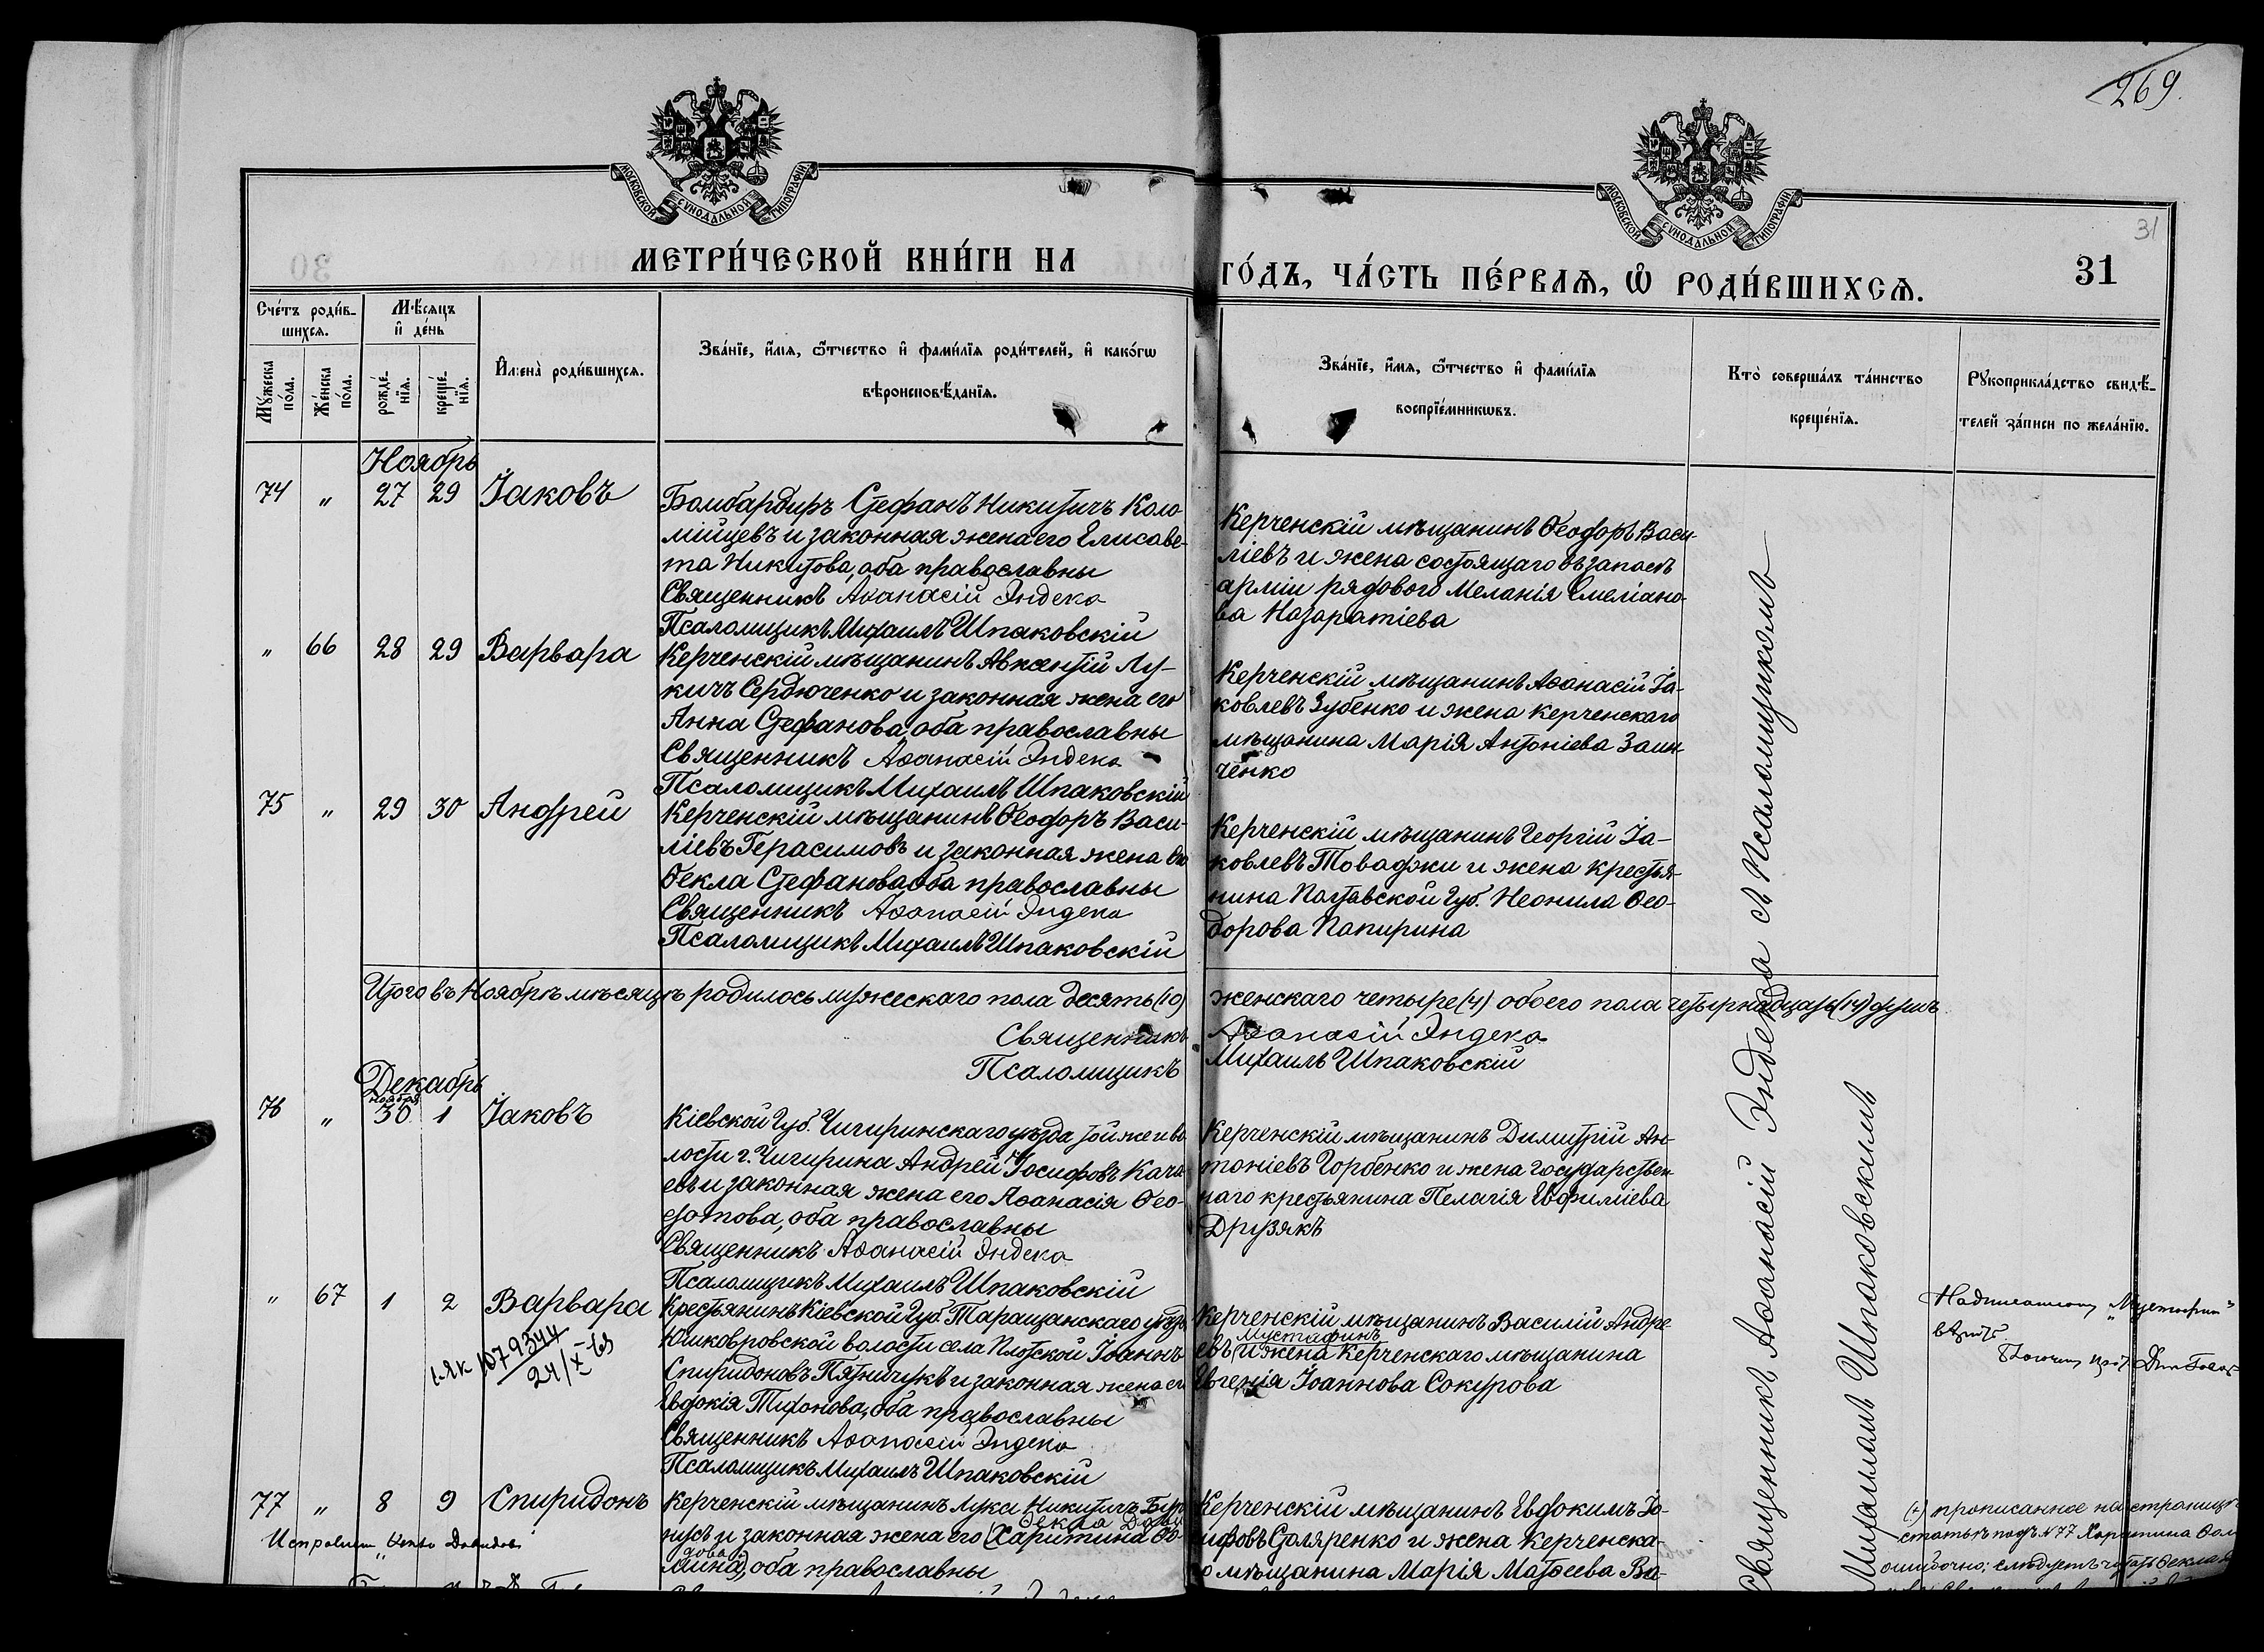 269.
МОСКОВСКОЙ СУНОДАЛЬНОЙ ТИПОГРАФІИ.
МОСКОВСКОЙ СУНОДАЛЬНОЙ ТИПОГРАФІИ.
31
МЕТРИ́ЧЕСКОЙ КНИ́ГИ НА
ГО́ДЪ, ЧА́СТЬ ПЕ́РВАѦ, Ѡ РОДИ́ВШИХСѦ.
31
Сче́тъ роди́в-
шихся.
Мꙋ́жеска по́ла.
Же́нска по́ла.
Мѣ́сяцъ
и҆ де́нь
рожде́-
нїя.
креще́-
нїя.
И҆мена̀ роди́вшихся.
Зва́нїе, и҆́мя, ѻ҆́тчество и҆ фами́лїя роди́телей, и҆ како́гѡ
вѣроисповѣ́данїя.
Зва́нїе, и҆́мя, ѻ҆́тчество и҆ фами́лїя
воспрїе́мникѡвъ.
Кто̀ соверша́лъ та́инство
креще́нїя.
Рꙋкоприкла́дство свидѣ́-
телей за́писи по жела́нїю.
Ноябрь
74 " 27 29 Іаковъ
Бомбардиръ Стефанъ Никитичъ Коло-
мійцевъ и законная жена его Елисаве-
та Никитова, оба православны
Священникъ Аѳанасій Эндека
Псаломщикъ Михаилъ Шпаковскій
Керченскій мѣщанинъ Ѳеодоръ Васи-
ліевъ и жена состоящаго въ запасѣ
арміи рядового Меланія Емеліано-
ва Назаратіева
" 66 28 29 Варвара
Керченскій мѣщанинъ Авксентій Лу-
кичъ Сердюченко и законная жена его
Анна Стефанова, оба православны
Священникъ Аѳанасій Эндека
Псаломщикъ Михаилъ Шпаковскій
Керченскій мѣщанинъ Аѳанасій Іа-
ковлевъ Зубенко и жена керченскаго
мѣщанина Марія Антоніева Заин-
ченко
75 " 29 30 Андрей
Керченскій мѣщанинъ Ѳеодоръ Васи-
ліевъ Герасимовъ и законная жена его
Ѳекла Стефанова, оба православны
Священникъ Аѳанасій Эндека
Псаломщикъ Михаилъ Шпаковскій
Керченскій мѣщанинъ Георгій Іа-
ковлевъ Товаджи и жена крестья-
нина Полтавской Губ. Неонила Ѳео-
дорова Папирина
Итого въ Ноябрѣ мѣсяцѣ родилось мужескаго пола десять (10) женскаго четыре (4) обоего пола четырнадцать (14) душъ
Священникъ Аѳанасій Эндека
Псаломщикъ Михаилъ Шпаковскій
Декабрь
ноября
76 " 30 1 Іаковъ
Кіевской Губ. Чигиринскаго уѣзда той же и во-
лости г. Чигирина Андрей Іосифовъ Кача-
евъ и законная жена его Аѳанасія Ѳео-
дотова, оба православны
Священникъ Аѳанасій Эндека
Псаломщикъ Михаилъ Шпаковскій
Керченскій мѣщанинъ Димитрій Ан-
тоніевъ Горбенко и жена государствен-
наго крестьянина Пелагія Евфиміева
Друзякъ
" 67 1 2 Варвара
1079344
24/X-63
Крестьянинъ Кіевской Губ. Таращанскаго уѣзда
волости села Іоаннъ
Спиридоновъ Пятничукъ и законная жена его
Евдокія Тихонова, оба православны
Священникъ Аѳанасій Эндека
Псаломщикъ Михаилъ Шпаковскій
Керченскій мѣщанинъ Василій Андре-
Мустафинъ
евъ и жена Керченскаго мѣщанина
Евгенія Іоаннова Сокурова
Надписанному "Мустафинъ"
вѣрить.
77 " 8 9 Спиридонъ
Керченскій мѣщанинъ Лука Никитичъ
Ѳекла Дави-
нусъ и законная жена его (Харитина
дова
оба православны
Керченскій мѣщанинъ Евдокимъ Іо-
сифовъ Столяренко и жена Керченска-
го мѣщанина Марія Матѳеева Ва-
(+) прописанное на страницѣ
статьѣ подъ №77 Харитина
ошибочно; слѣдуетъ читать Ѳекла
Священникъ Аѳанасій Эндека съ Псаломщикомъ
Михаиломъ Шпаковскимъ